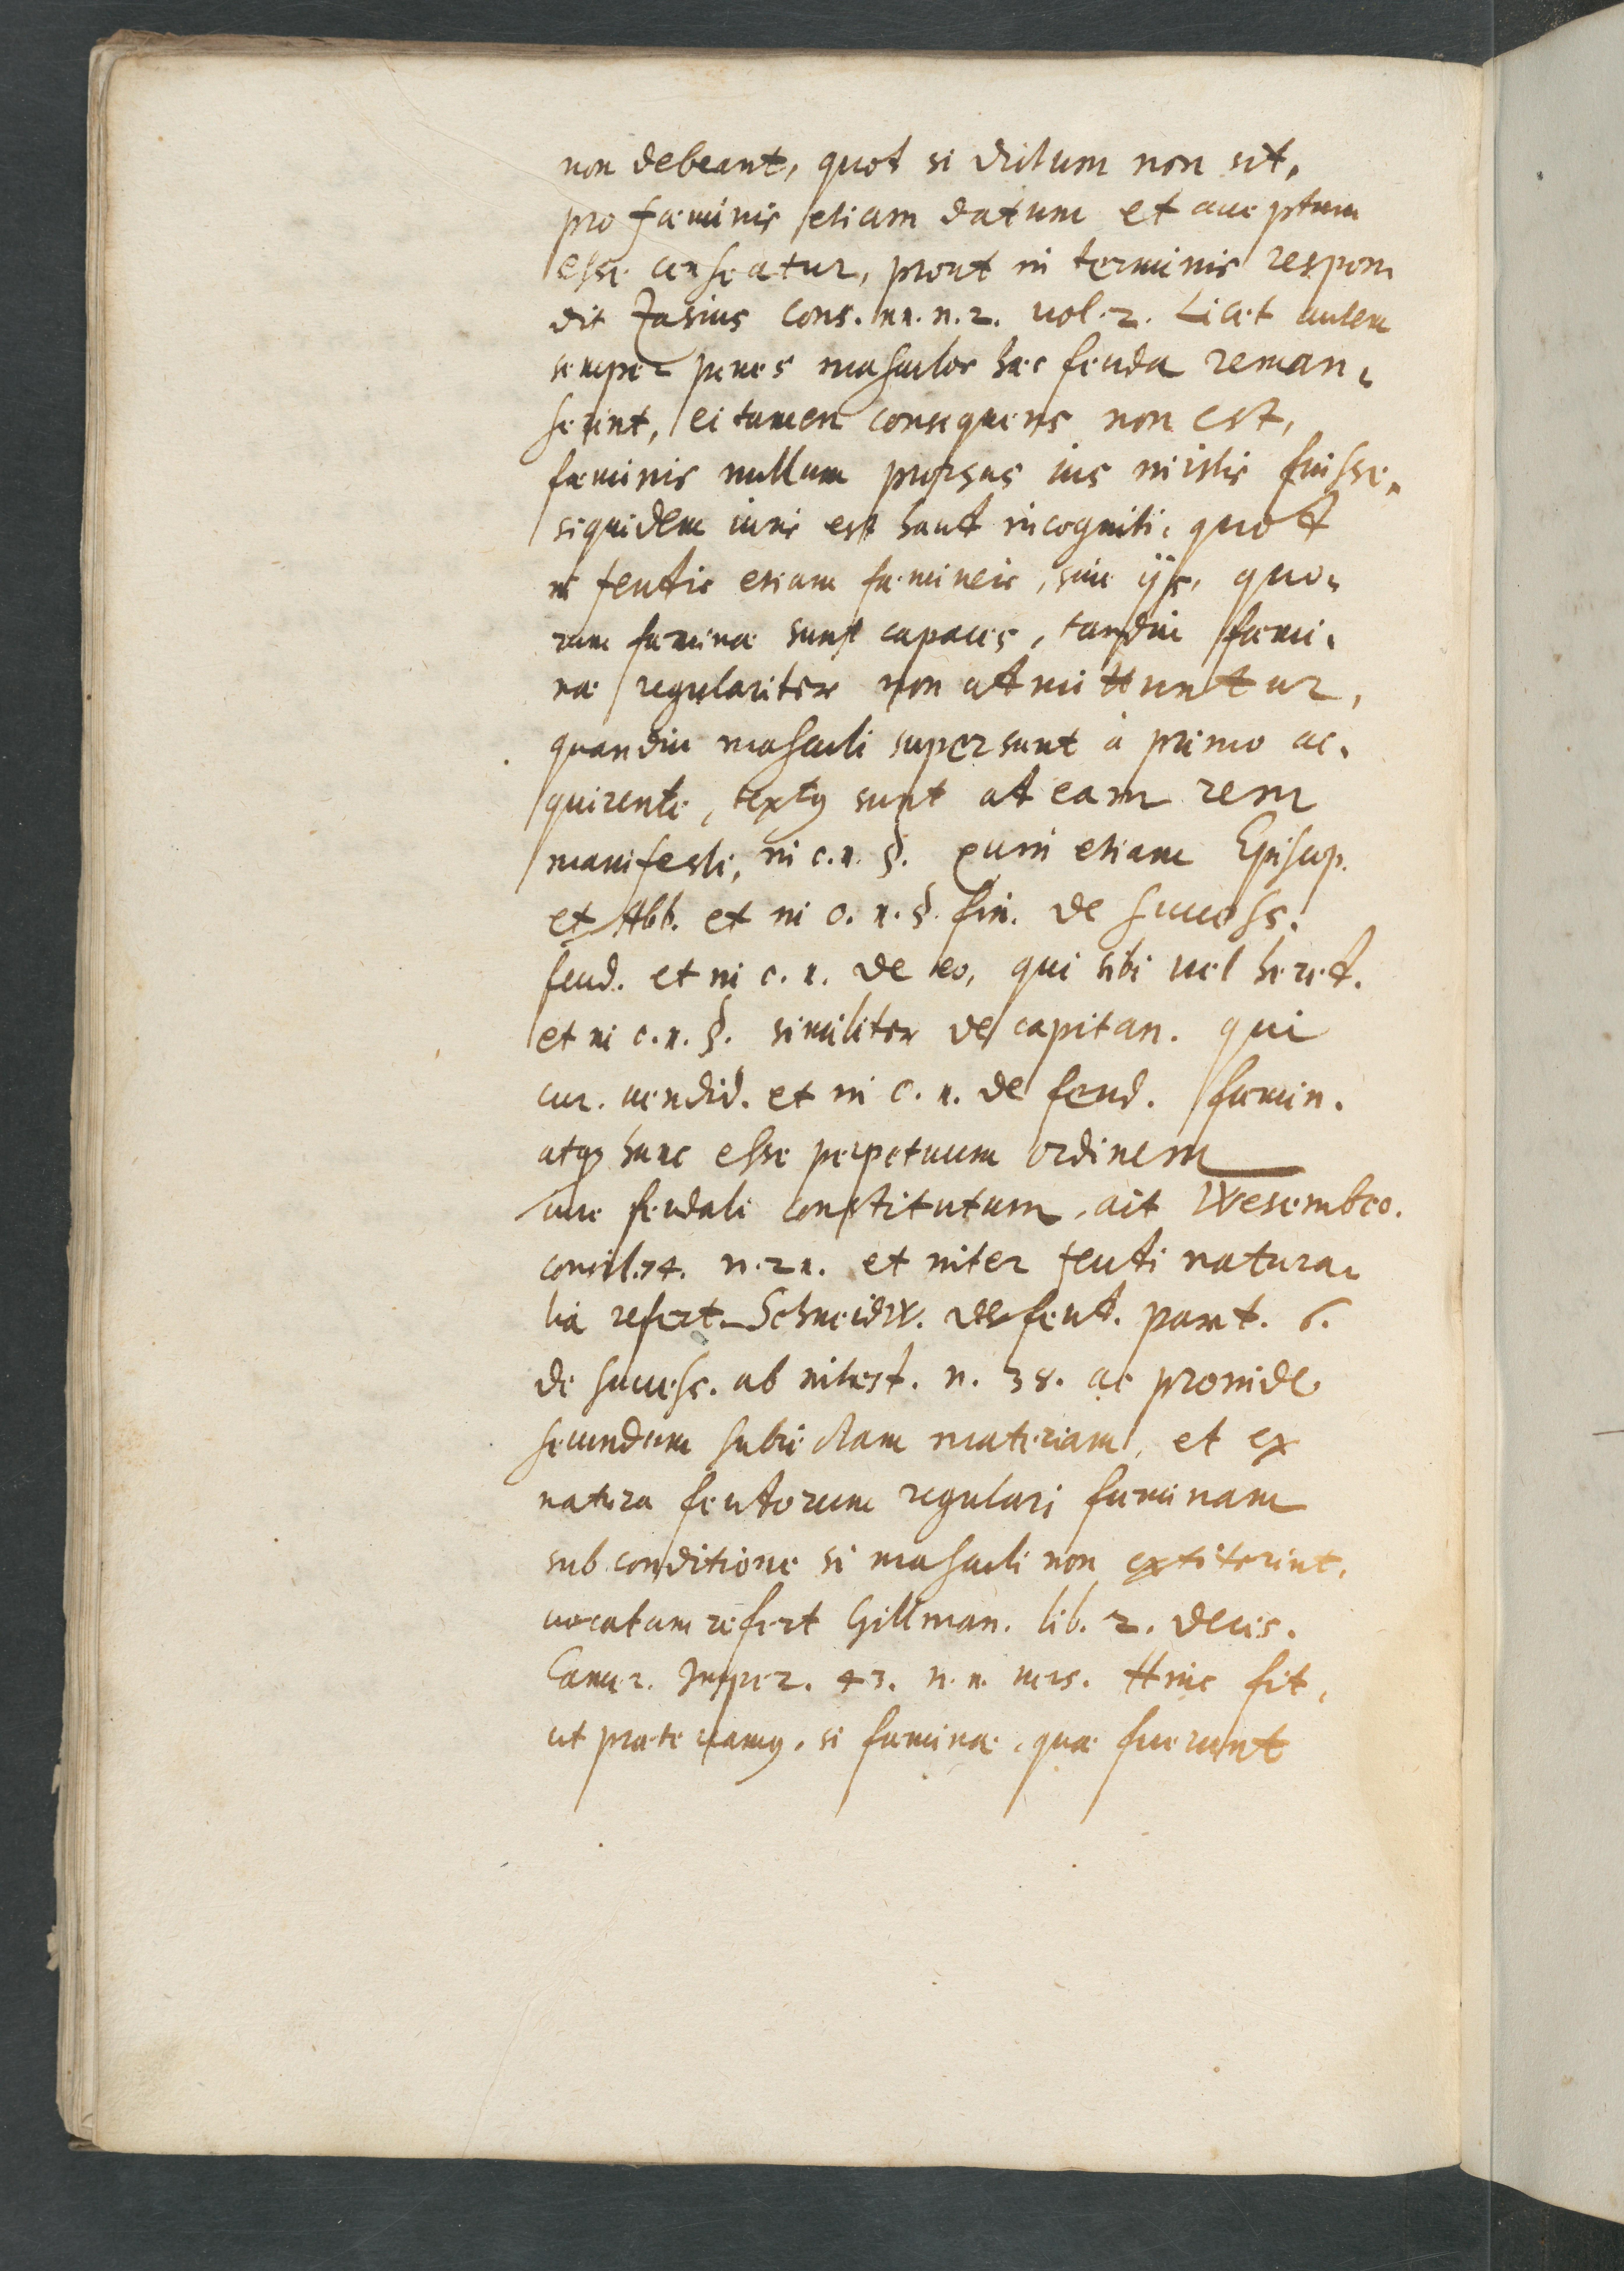 non debeant, quod si dictum non sit,
pro fæminis etiam datum et acceptum
esse censeatur, prout in terminis respon
dit Zasius cons. 11. n. 2. uol. 2. Licet autem
semper penes masculos hæc feuda reman-
serint, ei tamen consequens non est,
fæminis nullum prorsus ius in istis fuisse,
siquidem iuris est haud incogniti, quod
in feudis etiam fæmineis, siue ijs, quo-
rum fæminæ sunt capaces, tamdiu fæmi-
næ regulariter non admittuntur,
quandiu masculi supersunt à primo ac-
quirente, textus sunt ad eam rem
manifesti, in c. 1. §. quin etiam Episcop.
et Abb. et in c. 1. §. fin. de success.
feud. et in c. 1. de eo, qui sibi uel hered.
et in c. 1. §. similiter de capitan. qui
cur. uendid. et in c. 1. de feud. fæmin.
atq3 hunc esse perpetuum ordinem
iure feudali constitutum, ait Wesembec.
consil. 74. n. 21. et inter feudi natura-
lia refert Schneidw. de feud. part. 6.
de success. ab intest. n. 38. ac proinde
secundum subiectam materiam, et ex
natura feudorum regulari fæminam
sub conditione si masculi non extiterint,
uocatam refert Gillman. lib. 2. decis.
Camer. Imper. 43. n. 11. uers. Hinc fit,
ut prætereamus, si fæminæ, quæ fuerunt